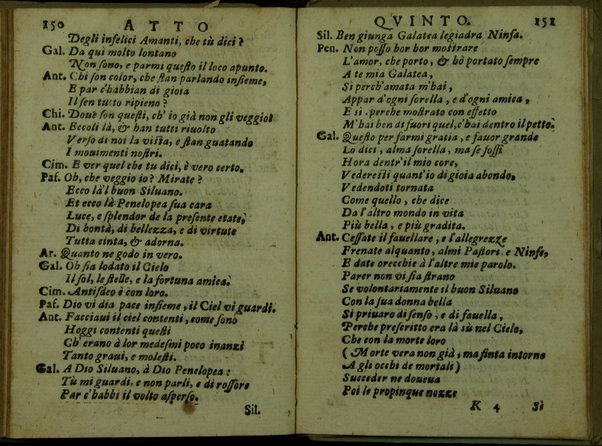 150 ATTO
Degli infelici Amanti, che tù dici?
Gal. Da qui molto lontano
Non sono, e parmi questo il loco apunto.
Ant. Chi son color, che stan parlando insieme,
E par c'habbian di gioia
Il sen tutto ripieno?
Chi. Doue son questi, ch' io già non gli veggio?
Ant. Eccoli là, & han tutti riuolto
Verso di noi la vista, e stan guatando
I mouimenti nostri.
Cim. E ver quel che tu dici, è vero certo.
Pas. Oh, che veggio io? Mirate?
Ecco là'l buon Siluano.
Et ecco là Penelopea sua cara
Luce, e splendor de la presente etate,
Di bontà, di bellezza, e di virtute
Tutta cinta, & adorna.
Ar. Quanto ne godo in vero.
Gal. Oh sia lodato il Cielo
Il sol, le stelle, e la fortuna amica.
Cim. Antisdeo è con loro.
Pas. Dio vi dia pace insieme, il Ciel vi guardi.
Ant. Facciaui il ciel contenti, come sono
Hoggi contenti questi
Ch' erano à lor medesmi poco inanzi
Tanto graui, e molesti.
Gal. A Dio Siluano, à Dio Penelopea:
Tù mi guardi, e non parli, e di rossore
Par c'habbi il volto asperso.
Sil.
QVINTO. 151
Sil. Ben giunga Galatea legiadra Ninfa.
Pen. Non posso hor hor mostrare
L'amor, che porto, & hò portato sempre
A te mia Galatea,
Sì perch'amata m'hai,
Appar d'ogni sorella, e d'ogni amica,
E sì, perche mostrato con effetto
M'hai ben di fuori quel, c'hai dentro il petto.
Gal. Questo per farmi gratia, e fauor grande
Lo dici, alma sorella, ma se fossi
Hora dentr'il mio core,
Vederesti quant'io di gioia abondo,
Vedendoti tornata
Come quello, che dice
Da l'altro mondo in vita
Più bella, e più gradita.
Ant. Cessate il fauellare, e l'allegrezze
Frenate alquanto, almi Pastori e Ninfe,
E date orecchie à l'altre mie parolo.
Parer non vi sia strano
Se volontariamente il buon Siluano
Con la sua donna bella
Si priuaro di senso, e di fauella,
Perche prescritto era là sù nel Cielo,
Che con la morte loro
(Morte vera non già, ma finta intorno
A gli occhi de mortali)
Succeder ne doueua
Poi le propinque nozze
K 4 Sè